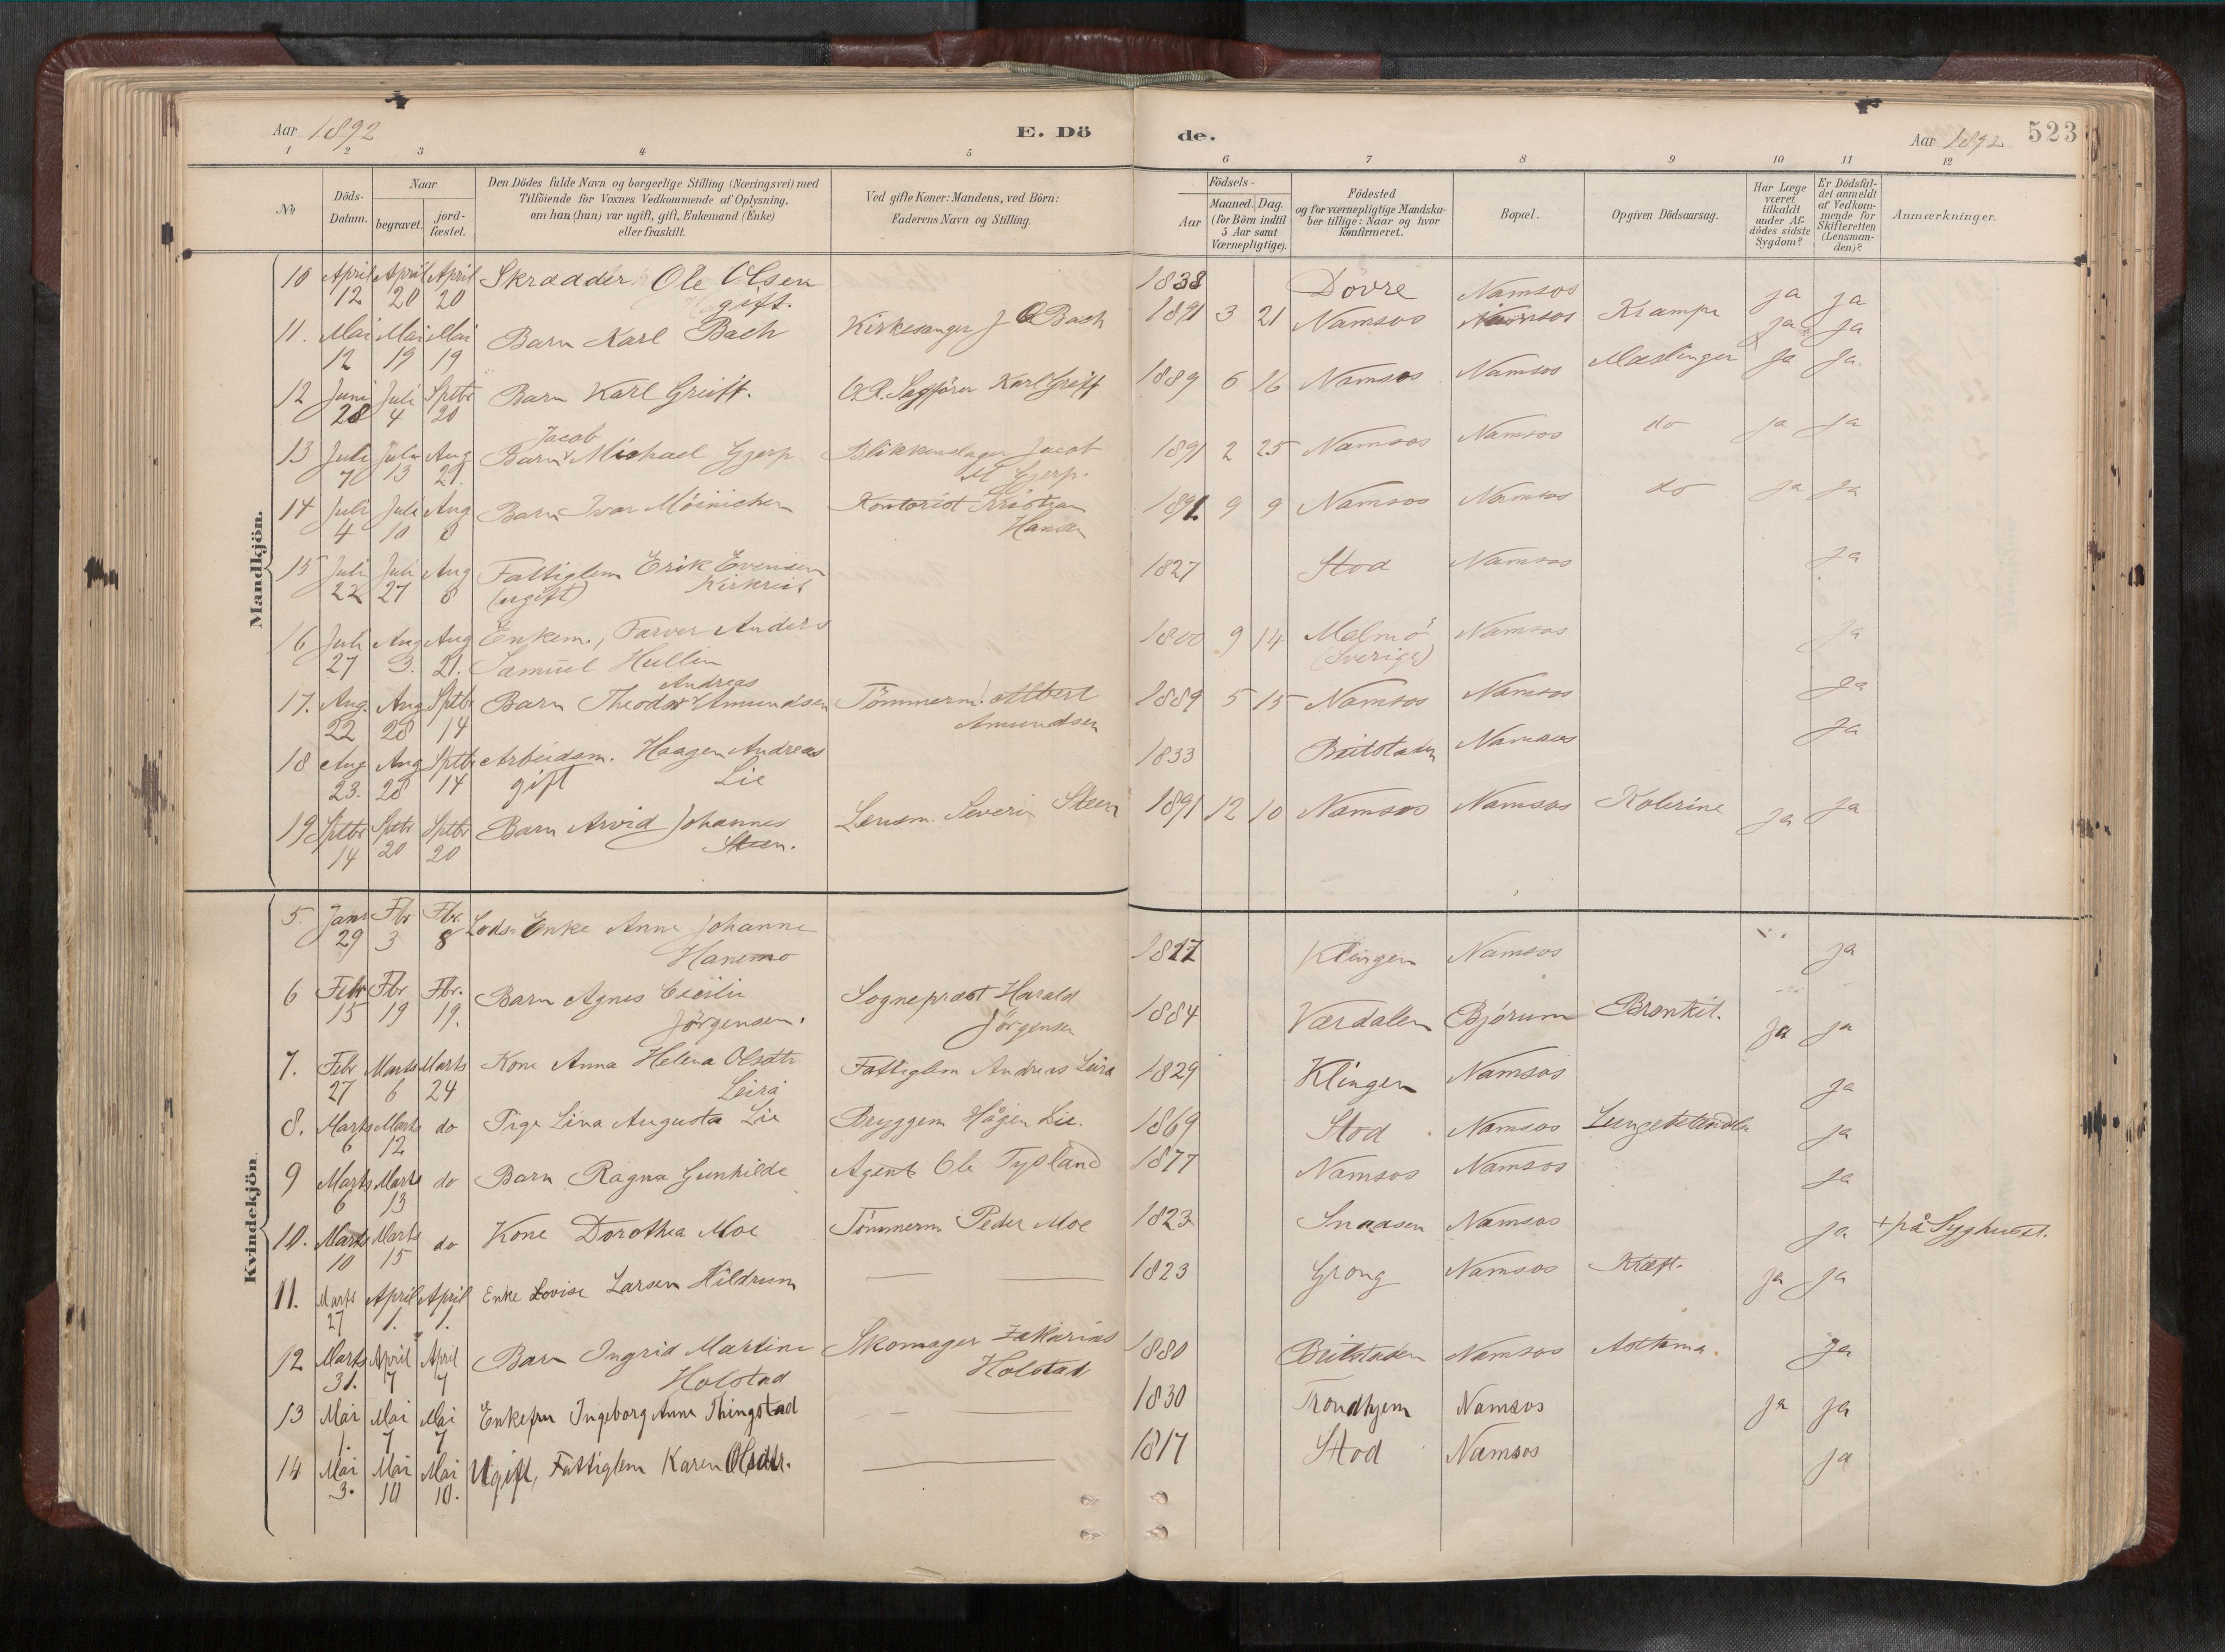 Aar 1892
E. Dö
de.
Aar 1892
523
1 2 3 4 5 6 7 8 9 10 11 12
No
Döds-Datum.
Naar
begravet.
jord-fæstet.
Den Dödes fulde Navn og borgerlige Stilling (Næringsvei) med
Tilföiende for Voxnes Vedkommende af Oplysning,
om han (hun) var ugift, gift, Enkemand (Enke)
eller fraskilt.
Ved gifte Koner: Mandens, ved Börn:
Faderens Navn og Stilling.
Födsels-
Aar
Maaned. Dag.
(for Börn indtil
5 Aar samt
Værnepligtige).
Födested
og for værnepligtige Mandska-
ber tillige: Naar og hvor
Konfirmeret.
Bopæl.
Opgiven Dödsaarsag.
Har Læge
været
tilkaldt
under Af-
dödes sidste
Sygdom?
Er Dödsfal-
det anmeldt
af Vedkom-
mende for
Skifteretten
(Lensman-
den)?
Anmærkninger.
Mandkjön.
10 April 12 April 20 April 20 Skrædder Ole Olsen gift. 1838 Dovre Namsos ja ja
11. Mai 12 Mai 19 Mai 19 Barn Karl Bach Kirkesanger J O Bach 1891 3 21 Namsos Namsos Krampe ja ja
12 Juni 28 Juli 4 Sptbr 20 Barn Karl Greiff. O.R. Sagförer Karl Greiff 1889 6 16 Namsos Namsos Mæslinger ja ja.
13 Juli 7 Juli 13 Aug 21. Barn Jacob Michael Gjerp Blikkenslager Jacob M Gjerp. 1891 2 25 Namsos Namsos do ja ja
14 Juli 4 Juli 10 Aug 8 Barn Ivar Möinichen Kontorist Kristian Hansen 1891 9 9 Namsos Namsos do ja ja
15 Juli 22 Juli 27 Aug 8 Fattiglem Erik Evensen (ugift) 1827 Stod Namsos ja
16 Juli 27 Aug 3. Aug 21. Enkem., Farver Anders Samuel Hullin 1800 9 14 Malmö (Sverige) Namsos ja
17. Aug. 22 Aug 28 Sptbr 14 Barn Theodor Andreas Amundsen Tömmerm. Albert Amundsen 1889 5 15 Namsos Namsos ja
18 Aug 23. Aug 28 Sptbr 14 Arbeidsm. Haagen Andreas Lie gift 1833 Beitstaden Namsos ja
19 Sptbr 14 Sptbr 20 Sptbr 20 Barn Arvid Johannes Steen. Lensm. Severin Steen 1891 12 10 Namsos Namsos Kolerine ja ja
Kvindekjön.
5. Janr 29 Fbr 3 Fbr. 8 Lods-Enke Anne Johanne Hanemo Klingen Namsos ja
6 Febr 15 Fbr 19 Fbr. 19. Barn Agnes Cecilie Jörgensen. Sogneprest Harald Jörgensen 1884 Værdalen Björum Bronkit. ja ja
7. Febr 27 Marts 6 Marts 24 Kone Anna Helena Olsdtr Leira Fattiglem Andreas Leira 1829 Klingen Namsos ja
8. Marts 6 Marts 12 do Pige Lina Augusta Lie Bryggem Hågen Lie. 1869 Stod Namsos ja
9 Marts 6 Marts 13 do Barn Ragna Gunhilde Agent Ole Tysland 1877 Namsos Namsos ja
10. Marts 10 Marts 15 do Kone Dorothea Moe Tömmerm Peder Moe 1823 Snaasen Namsos ja + på Syghuset.
11. Marts 27 April 1. April 1. Enke Lovise Larsen Hildrum 1823 Grong Namsos Kræft. ja ja
12 Marts 31. April 7 April 7 Barn Ingrid Martine Holstad Skomager Zakarias Holstad 1880 Beitstaden Namsos Asthma. ja
13 Mai 1. Mai 7 Mai 7 Enkefru Ingeborg Anna Thingstad 1830 Trondhjem Namsos ja ja
14 Mai 3. Mai 10 Mai 10. Ugift, Fattiglem Karen Olsdtr. 1817 Stod Namsos ja